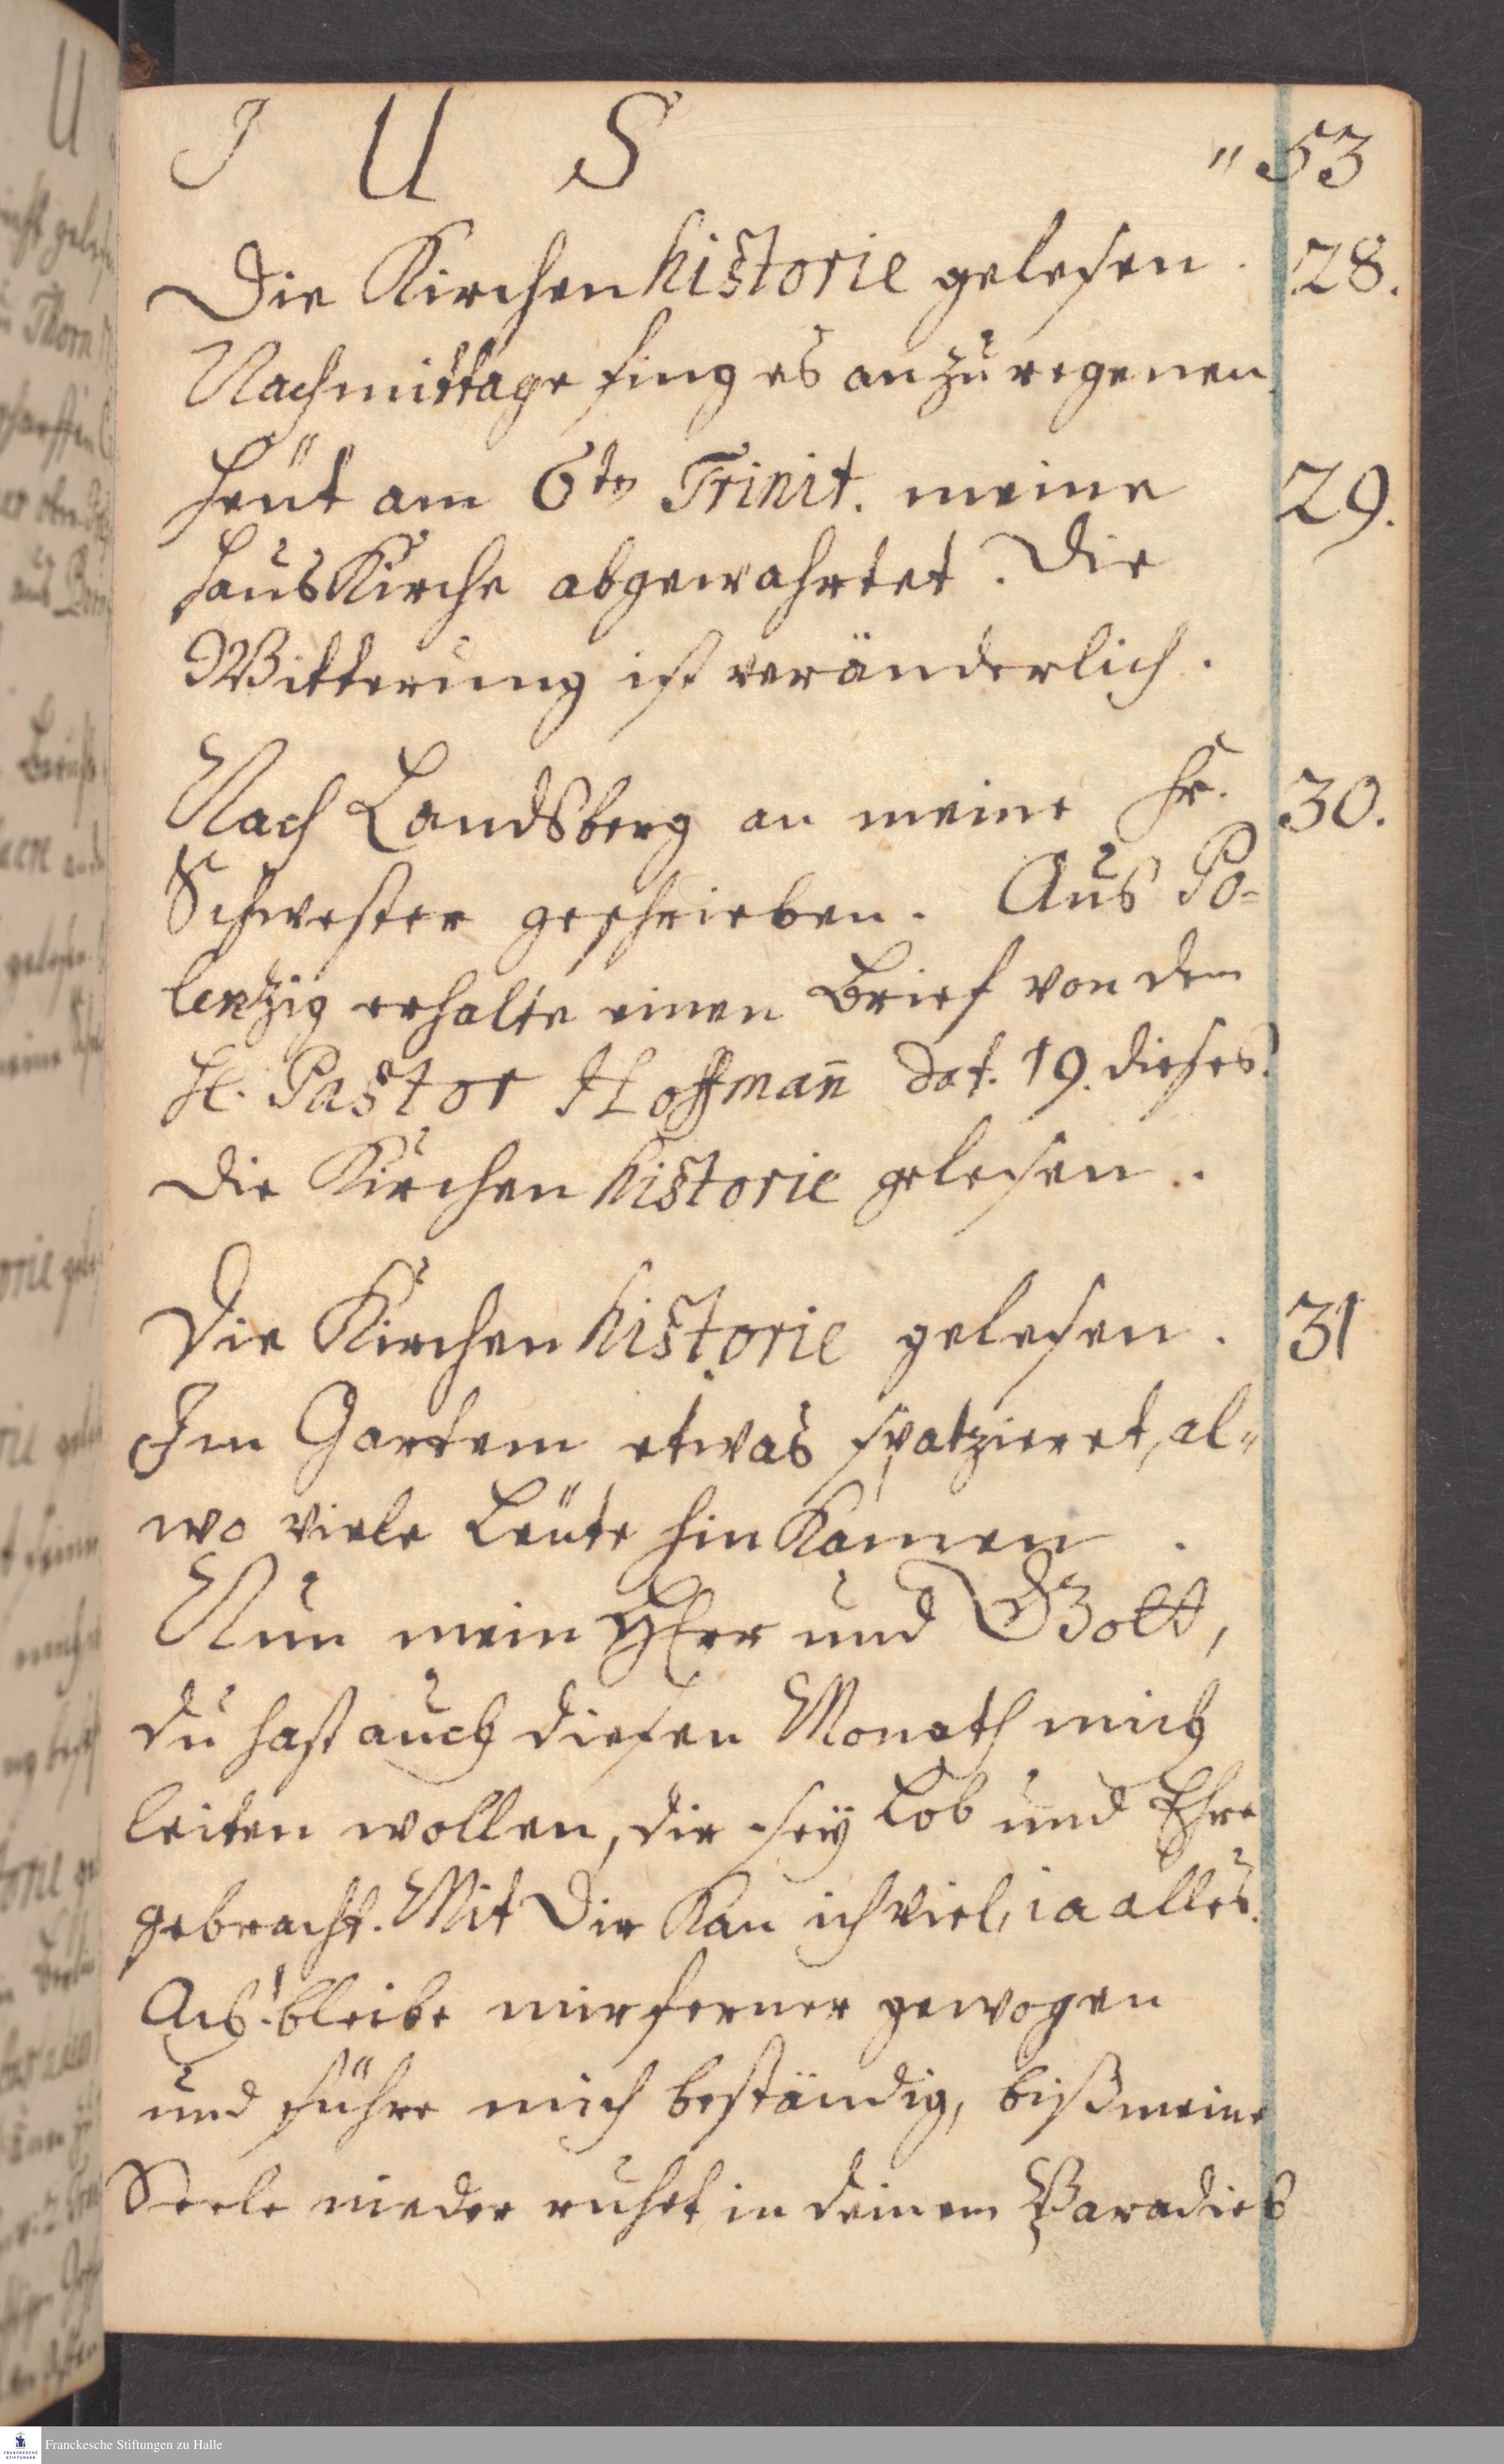 I U S " 53
Die Kirchenhistorie gelesen. 28.
Nachmittage fing es an zu regenen.
Heüt am 6ten Trinit. meine 29.
HausKirche abgewahrtet. Die
Witterung ist veränderlich.
Nach Landsberg an meine Fr. 30.
Schwester geschrieben. Aus Po=
lentzig erhalte einen Brief von dem
H. Pastor Hoffman̄ dat. 19. dieses.
Die Kirchenhistorie gelesen.
Die Kirchenhistorie gelesen. 31
Im Gartem etwas spatzieret, al=
wo viele Leüte hin Kamen.
Nun mein HErr und Gott,
du hast auch diesen Monath mich
leiten wollen, dir seÿ Lob und Ehre
gebracht. Mit Dir Kan ich viel, ia alles.
Ach! bleibe mir ferner gewogen
und führe mich beständig, biß meine
Seele nieder ruhet in deinem Paradies
Franckesche Stiftungen zu Halle